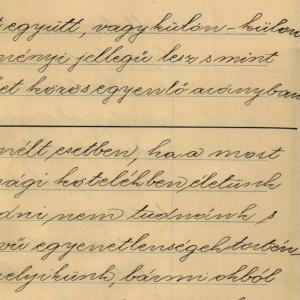 együtt, vagy külön-külön
ményi jellegű lesz s mint
et közös egyenlő arányban
mélt esetben, ha a most
sági kötelékben életünk
dni nem tudnánk s
vű egyenetlenségek történ
elyikünk, bármi okból